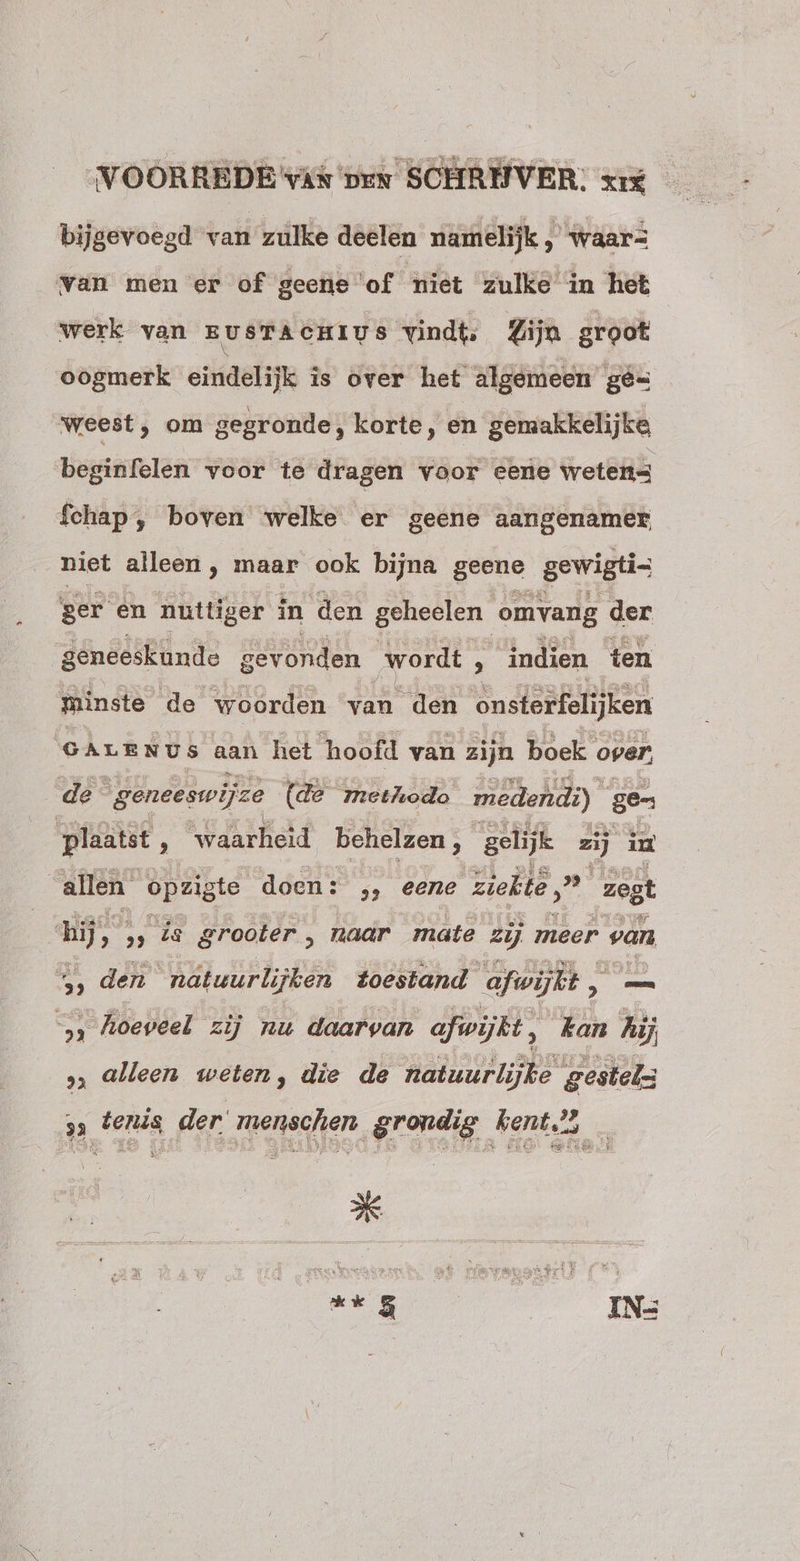 VOORREDE VAN DEN SCHRIJVER. XIX
bijgevoegd van zulke deelen namelijk, waar-
van men er of geene of niet zulke in het
werk van EUSTACHIUS vindt. Zijn groot
oogmerk eindelijk is over het algemeen ge-
weest, om gegronde, korte, en gemakkelijke
beginſelen voor te dragen voor eene weten-
ſchap, boven welke er geene aangenamer
niet alleen, maar ook bijna geene gewigti-
ger en nuttiger in den geheelen omvang der
geneeskunde gevonden wordt, indien ten
minste de woorden van den onsterfelijken
GALENUS aan het hoofd van zijn boek over
de geneeswijze (de methodo medendi) ge-
plaatst, waarheid behelzen, gelijk zij in
allen opzigte doen: „ eene ziekte,” zegt
hij, „ is grooter, naar mate zij meer van
„ den natuurlijken toestand afwijkt, —
„ hoeveel zij nu daarvan afwijkt, kan hij
„ alleen weten, die de natuurlijke gestel-
„ tenis der menschen grondig kent.”
** 5 IN-